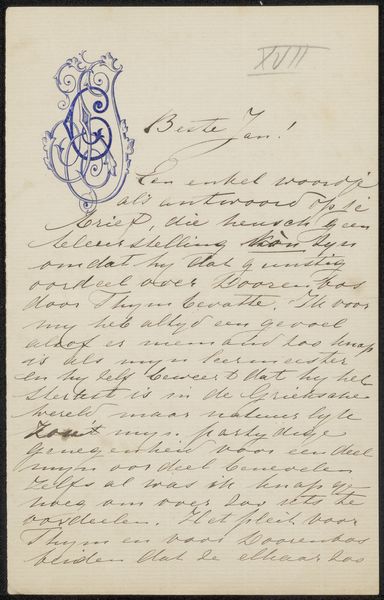 XVII
Beste Jan!
Een enkel woordje
als antwoord op je
brief, die heusch geen
teleurstelling kòn zyn
omdat hy dat gunstig
oordeel over Doorenbos
door Thym bevatte. Ik voor
my heb altyd een gevoel
alsof er niemand zoo knap
is als myn leermeester
en hy zelf beweert dat hy het
sterkst is in de Grieksche
wereld maar natuurlyk
zou't myn partydige
genegenheid voor een deel
myn oordeel benevelen
zelfs al was ik knap ge-
noeg om over zoo iets te
oordeelen. Het pleit voor
Thym en voor Doorenbos
beiden dat ze elkaar zoo